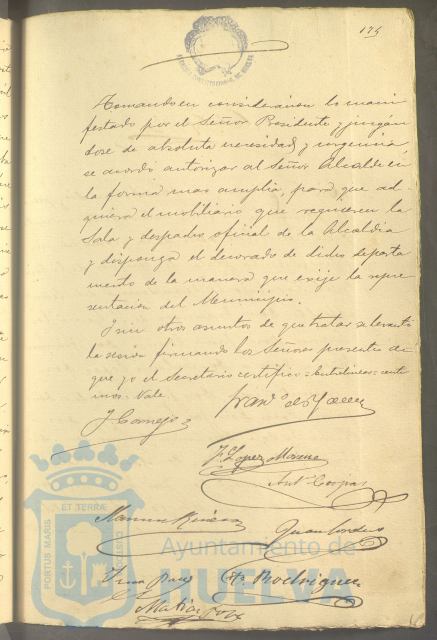 175
Tomando en consideracion lo mani
festado por el Señor Presidente y juzgan
dose de absoluta necesidad y urgencia,
se acordó autorizar al Señor Alcalde en
la forma mas amplia, para que ad
quiera el mobiliario que requieren la
Sala y despacho oficial de la Alcaldia
y disponga el decorado de dicho departa
mento de la manera que exije la repre
sentacion del Municipio.
Y sin otros asuntos de que tratar se levantó
la sesion firmando los Señores presentes de
que yo el Secretario certifico = Entrelineas =
Vale
J Cornejo
F. Lopez Moreno
Manuel
Juan Cordero
Rodriguez
Matias
PORTUS MARIS
ET TERRÆ
CUSTODIA
Ayuntamiento de
HUELVA